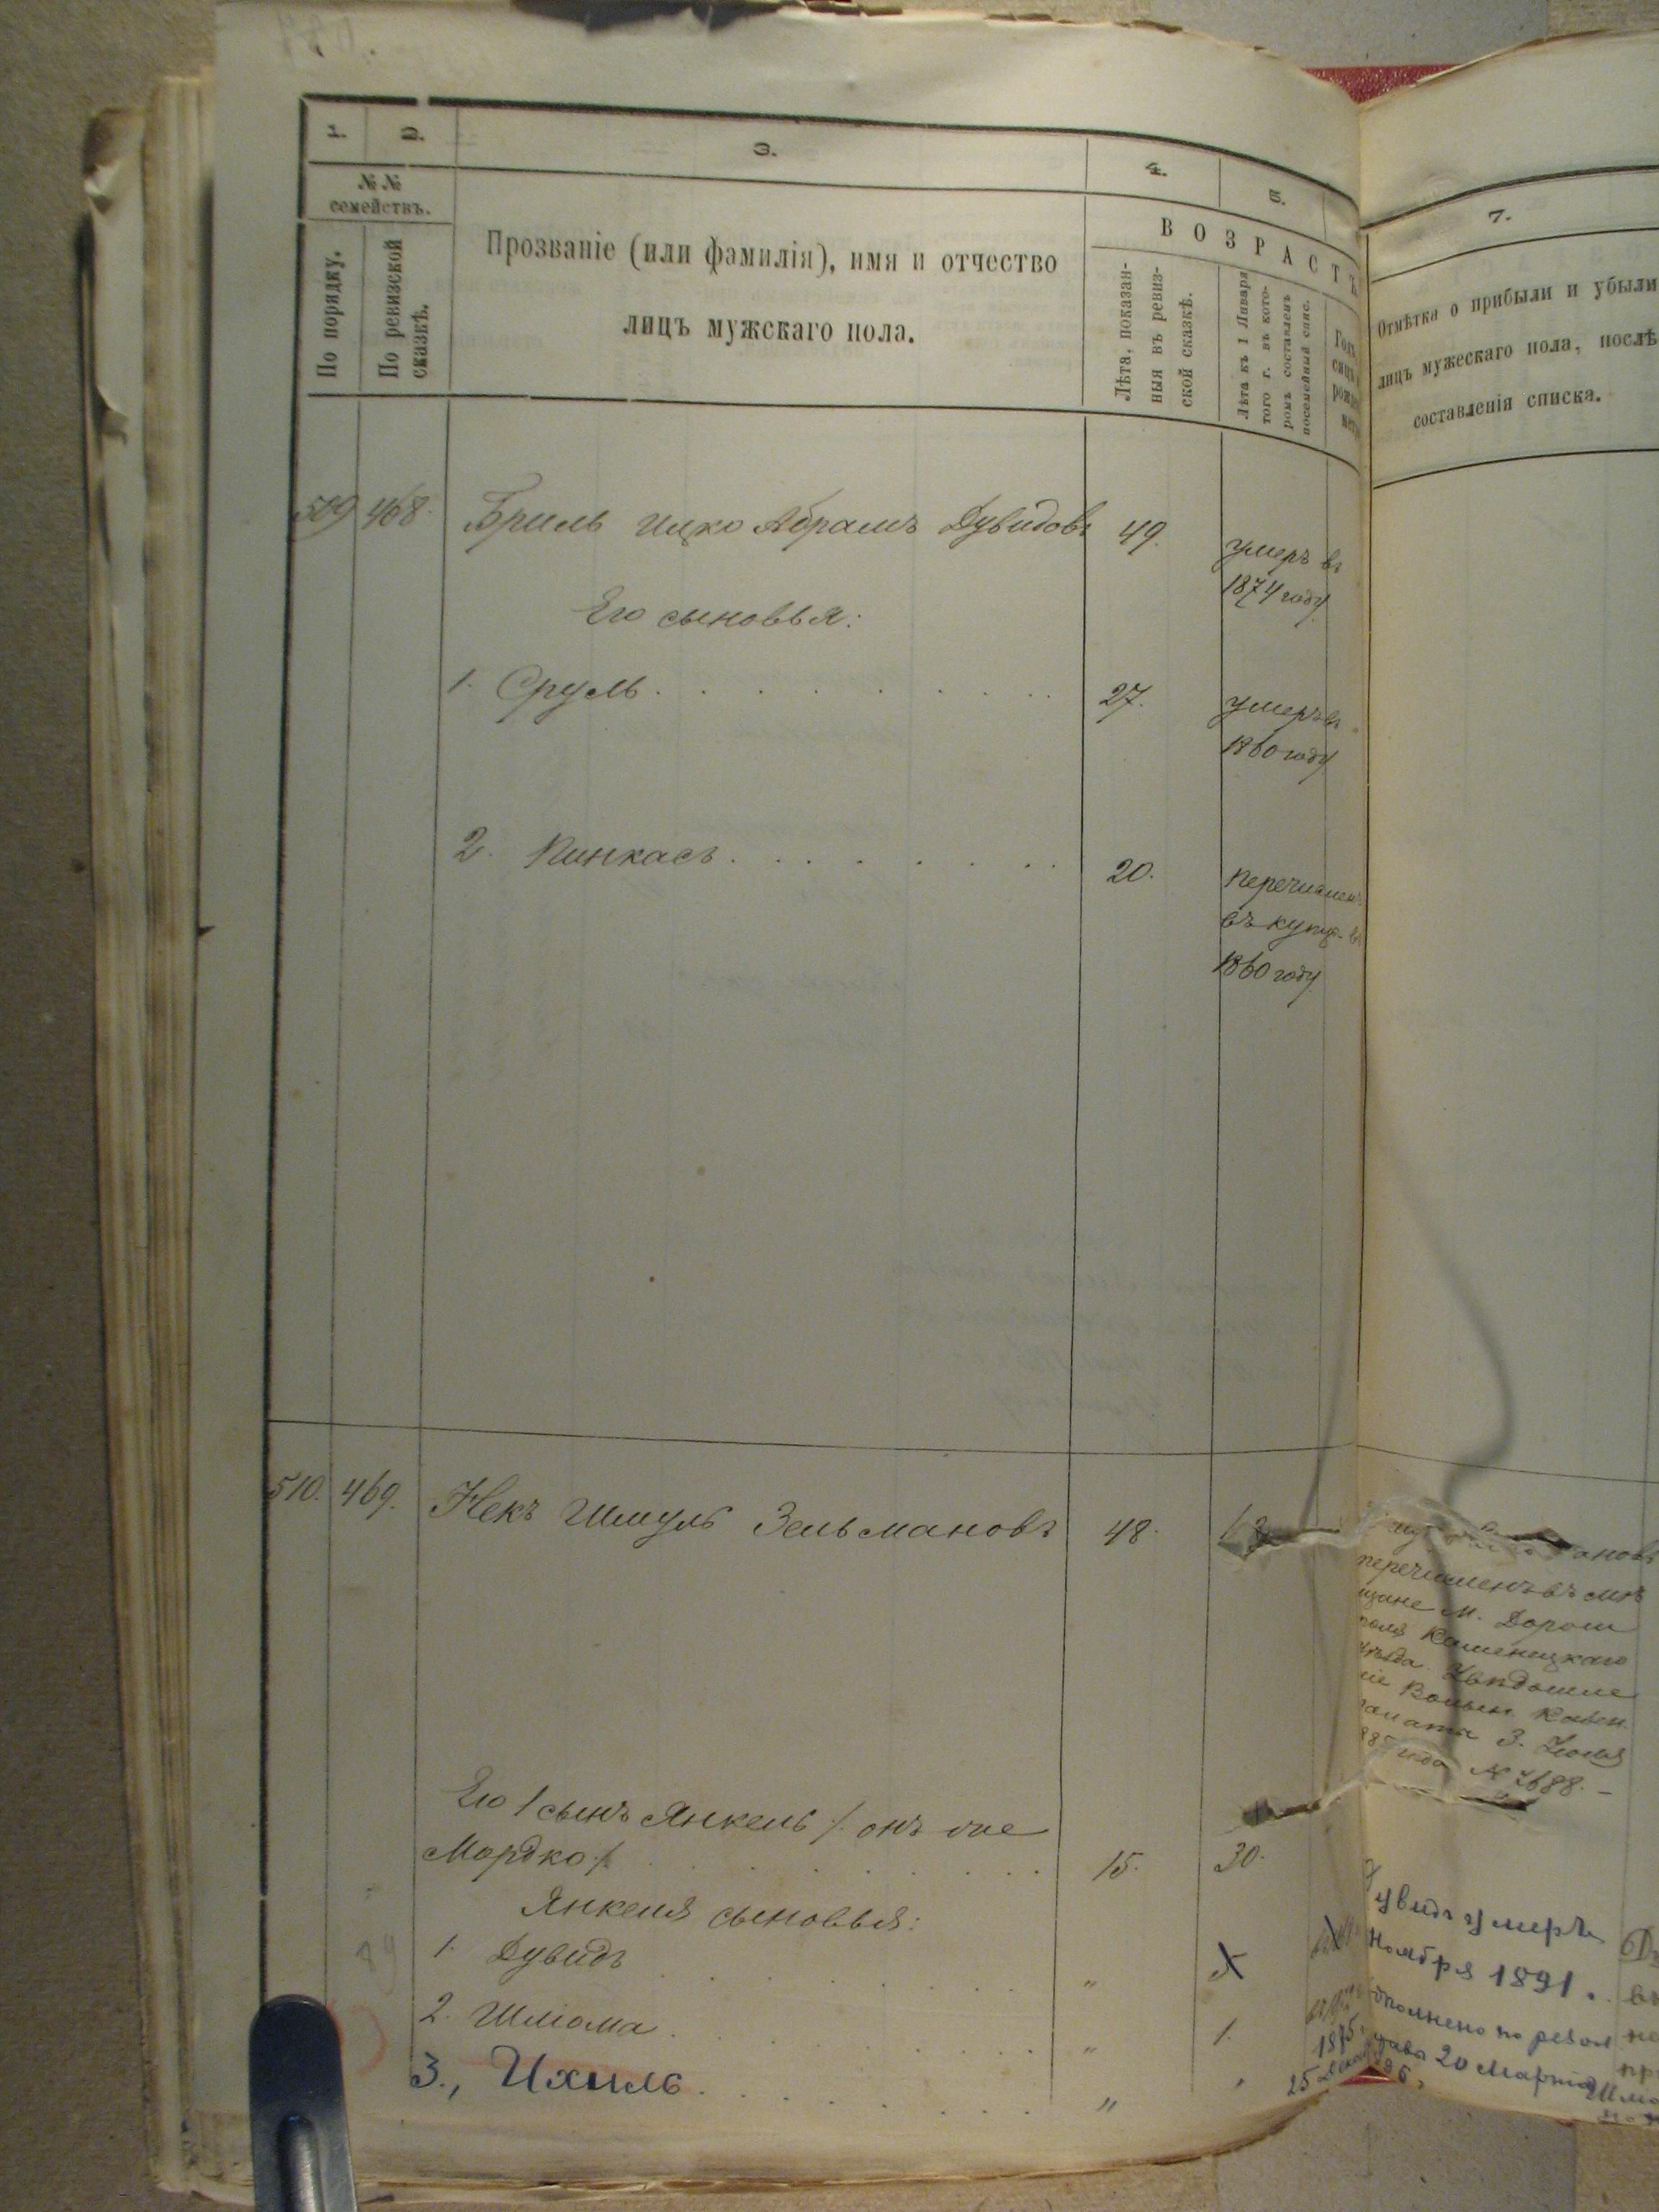 1. 2. 3. 4. 5. 7.
№ №
семействъ.
По порядку.
По ревизской
сказкѣ.
Прозваніе (или фамилія), имя и отчество
лицъ мужскаго пола.
ВОЗРАСТЪ
Лѣта, показан-
ныя въ ревиз-
ской сказкѣ.
Лѣта къ 1 Января
того г. въ кото-
ромъ составленъ
посемейный спис.
Отмѣтка о прибыли и убыли
лицъ мужескаго пола, послѣ
составленія списка.
509 468. Бриль Ицко Абрамъ Дувидовъ 49. умеръ въ
1874 году
Его сыновья:
1. Сруль 27. умеръ въ
1860 году
2. Пинкасъ 20. перечисленъ
въ купц. въ
1860 году
510. 469. Некъ Шмуль Зельмановъ 48.
перечисленъ въ мѣ
щане м. Дорош
поля Каменецкаго
уѣзда
Казен.
3. Іюля
года № 7688. —
Его 1 сынъ Янкель /: онъ же
Мордко :/ 15. 30.
Янкеля сыновья:
1. Дувидъ "
2. Шлиома " 1.
3., Ихиль "
1875
25 Декаб
Дувидъ умеръ
Ноября 1891.
дополнено по резол
20 Марта